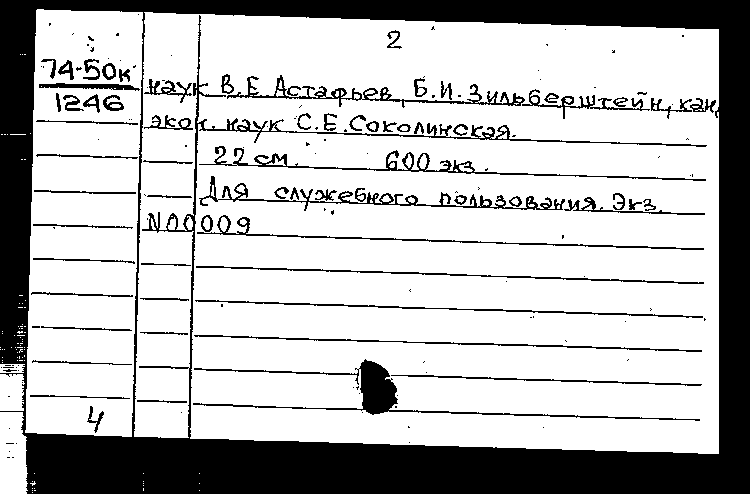 2
74-50к
1246
наук В.Е. Астафьев, Б.И. Зильберштейн, кан.
экон. наук С.Е. Соколинская.
22 см. 600 экз.
Для служебного пользования. Экз.
N00009
4